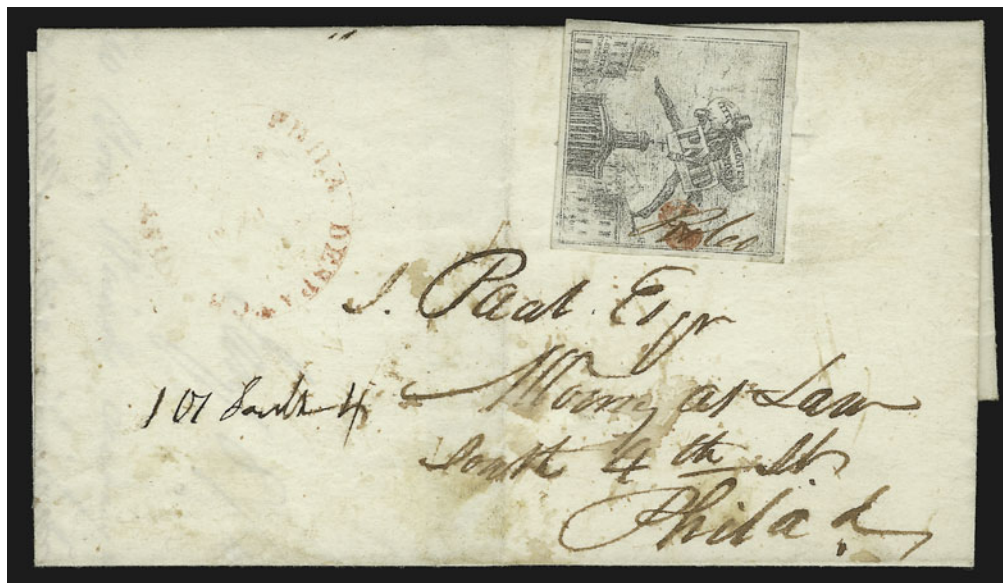 PHILA DESPATCH
P.M.D.
J. Pack Esqr
Attorney at Law
101 South 4
South 4th St
Philad